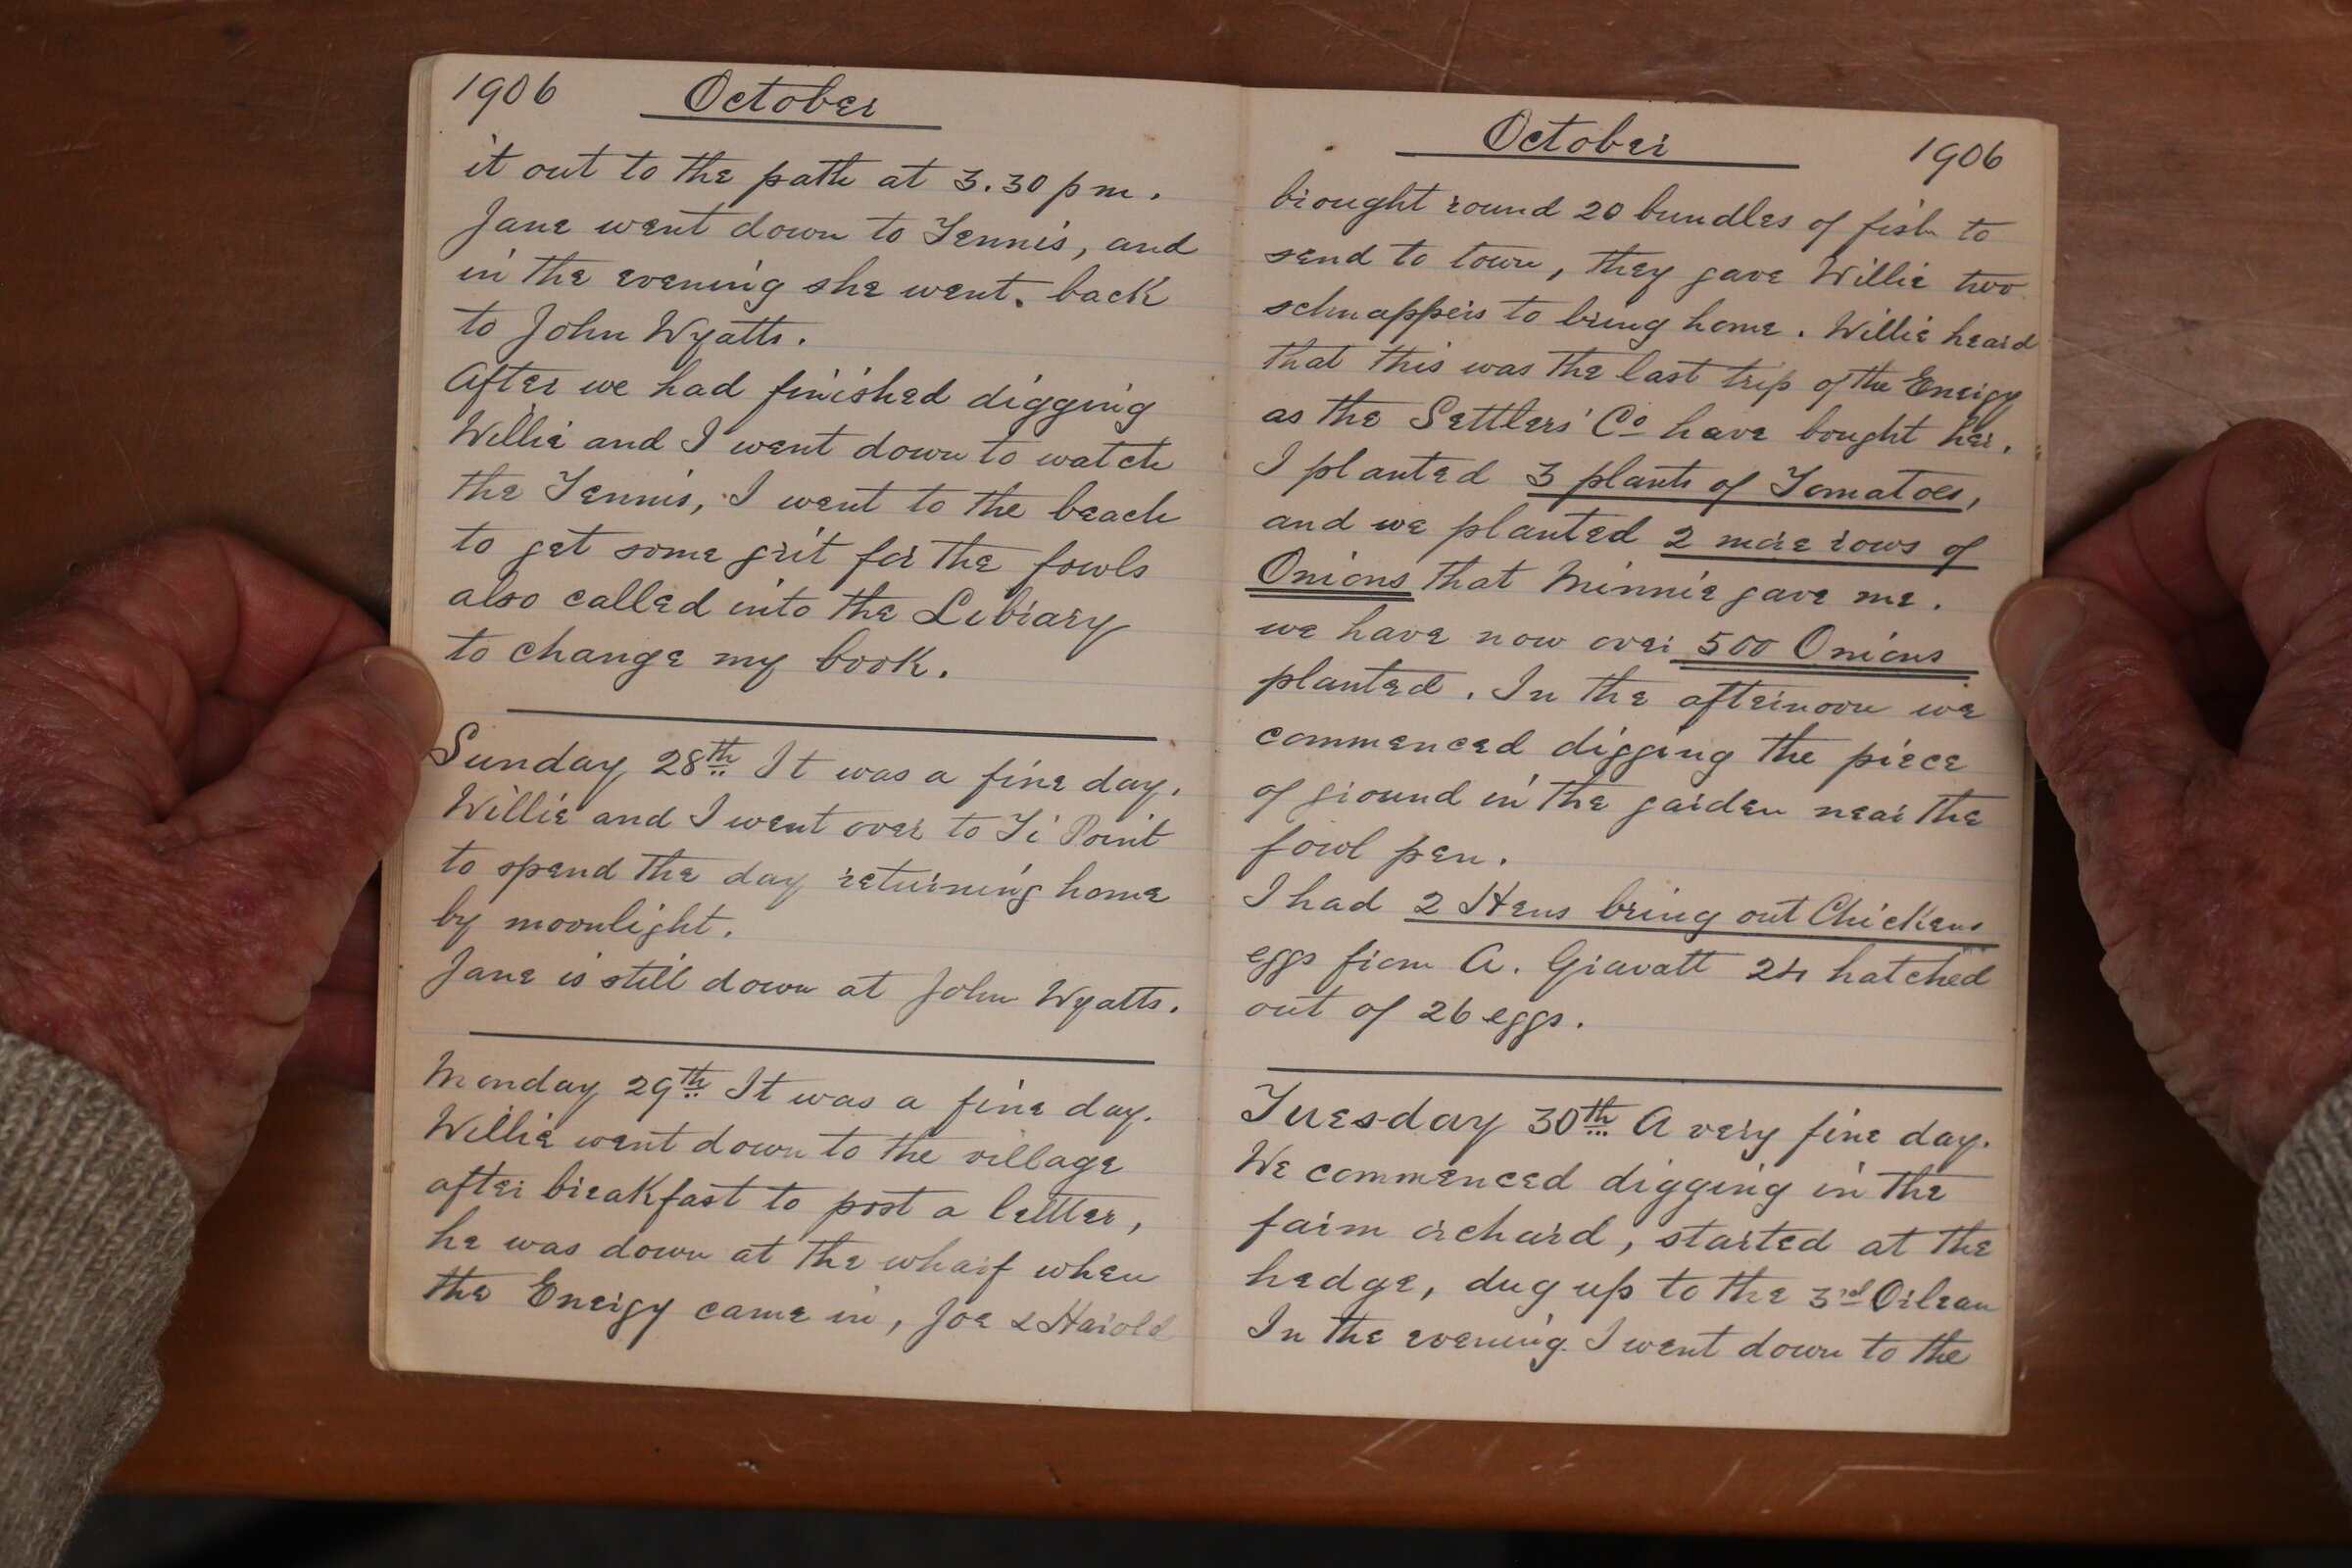 1906 October
it out to the path at 3.30 pm.
Jane went down to Tennis, and
in the evening she went. back
to John Wyatts.
After we had finished digging
Willie and I went down to watch
the Tennis, I went to the beach
to get some grit for the fowls
also called into the Library
to change my book.
Sunday 28th It was a fine day.
Willie and I went over to Ti Point
to spend the day returning home
by moonlight.
Jane is still down at John Wyatts.
Monday 29th It was a fine day.
Willie went down to the village
after breakfast to post a letter,
he was down at the wharf when
the Energy came in, Joe & Harold
October 1906
brought round 20 bundles of fish to
send to town, they gave Willie two
schnappers to bring home. Willie heard
that this was the last trip of the Energy
as the Settlers' Co have bought her.
I planted 3 plants of Tomatoes,
and we planted 2 more rows of
Onions that Minnie gave me.
we have now over 500 Onions
planted. In the afternoon we
commenced digging the piece
of ground in the garden near the
fowl pen.
I had 2 Hens bring out Chickens
eggs from A. Gravatt 24 hatched
out of 26 eggs.
Tuesday 30th A very fine day.
We commenced digging in the
farm orchard, started at the
hedge, dug up to the 3rd Orlean
In the evening I went down to the